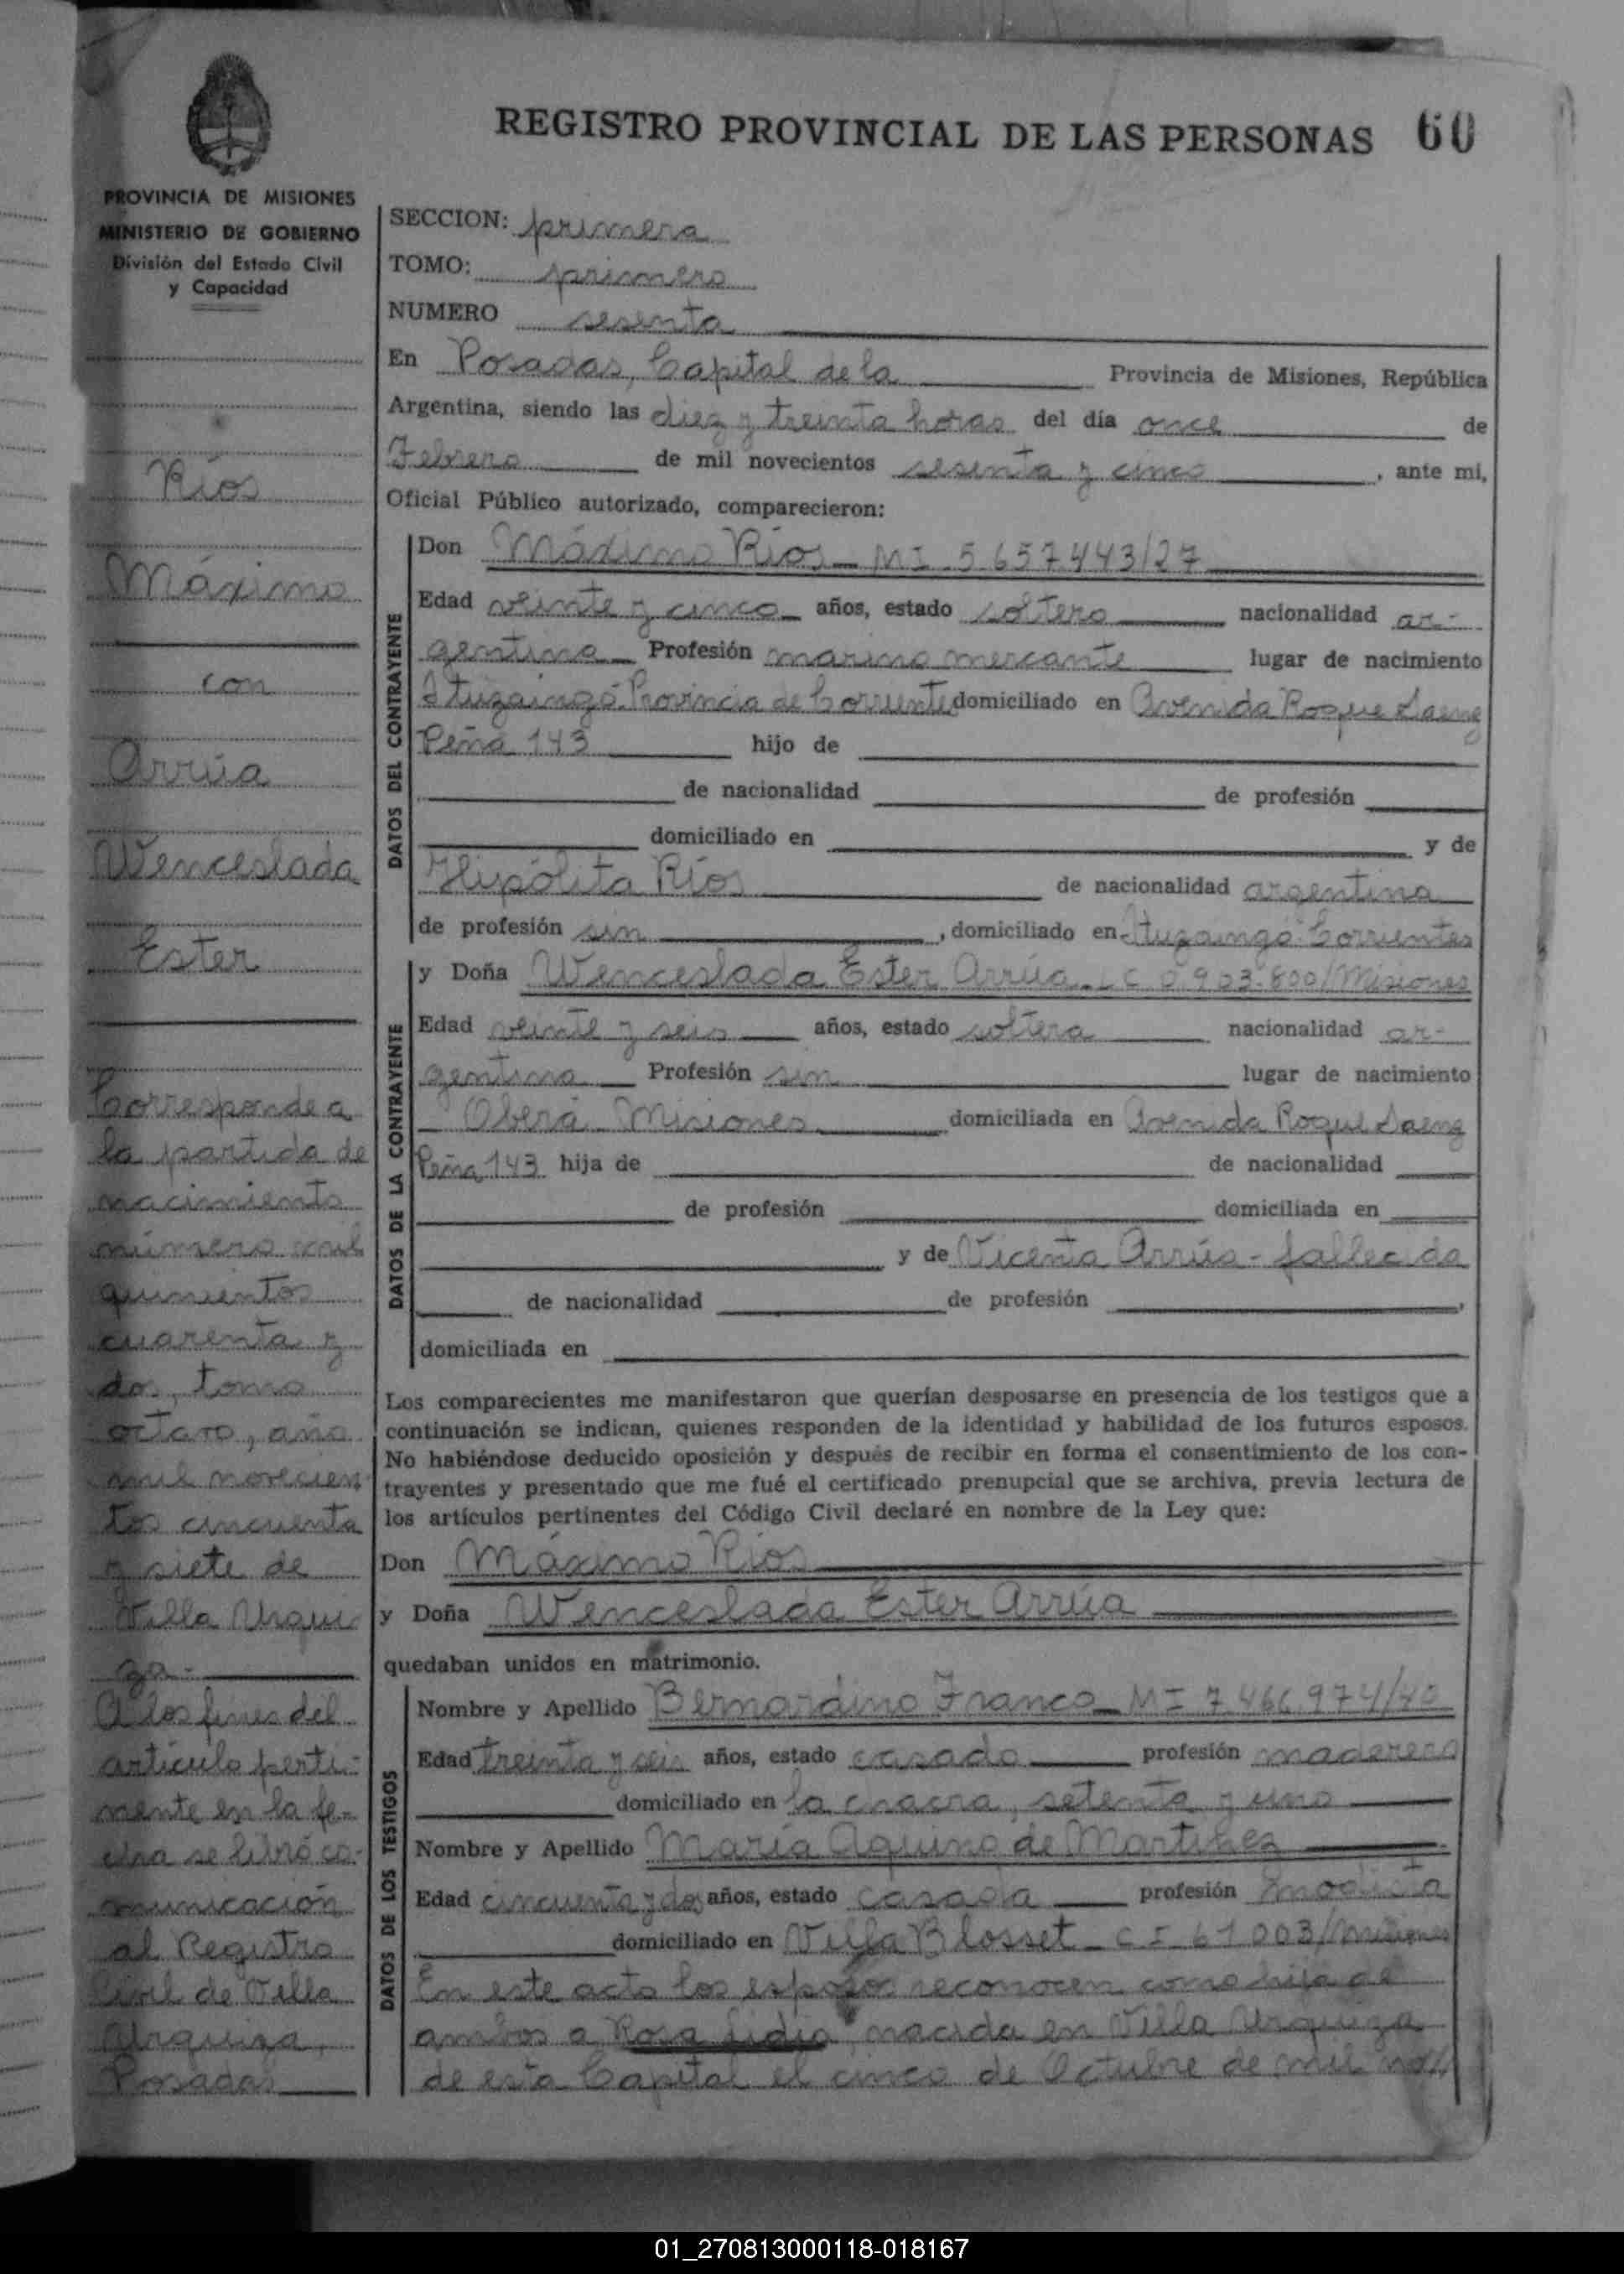 REGISTRO PROVINCIAL DE LAS PERSONAS 60
PROVINCIA DE MISIONES
MINISTERIO DE GOBIERNO
División del Estado Civil
y Capacidad
Ríos
Máximo
con
Arrúa
Wenceslada
Ester
Corresponde a
la partida de
nacimiento
número mil
quinientos
cuarenta y
dos, tomo
octavo, año
mil novecien
tos cincuenta
y siete de
Villa Urqui
za.-
A los fines del
artículo perti-
nente en la fe-
cha se libró co-
municación
al Registro
Civil de Villa
Urquiza,
Posadas
SECCION: primera
TOMO: primero
NUMERO sesenta
En Posadas, Capital de la Provincia de Misiones, República
Argentina, siendo las diez y treinta horas del día once de
Febrero de mil novecientos sesenta y cinco, ante mi,
Oficial Público autorizado, comparecieron:
DATOS DEL CONTRAYENTE
Don Máximo Ríos - MI. 5.657.443/27
Edad veinte y cinco años, estado soltero nacionalidad ar-
gentina Profesión marino mercante lugar de nacimiento
Ituzaingó-Provincia de Corrientes domiciliado en Avenida Roque Saenz
Peña 143 hijo de
de nacionalidad de profesión
domiciliado en y de
Hipólita Ríos de nacionalidad argentina
de profesión sin, domiciliado en Ituzaingó-Corrientes
DATOS DE LA CONTRAYENTE
y Doña Wenceslada Ester Arrúa - L C 0.903.800/Misiones
Edad veinte y seis años, estado soltera nacionalidad ar-
gentina Profesión sin lugar de nacimiento
Oberá Misiones domiciliada en Avenida Roque Saenz
Peña 143 hija de de nacionalidad
de profesión domiciliada en
y de Vicenta Arrúa - fallecida
de nacionalidad de profesión ,
domiciliada en
Los comparecientes me manifestaron que querían desposarse en presencia de los testigos que a
continuación se indican, quienes responden de la identidad y habilidad de los futuros esposos.
No habiéndose deducido oposición y después de recibir en forma el consentimiento de los con-
trayentes y presentado que me fué el certificado prenupcial que se archiva, previa lectura de
los artículos pertinentes del Código Civil declaré en nombre de la Ley que:
Don Máximo Ríos
y Doña Wenceslada Ester Arrúa
quedaban unidos en matrimonio.
DATOS DE LOS TESTIGOS
Nombre y Apellido Bernardino Franco - MI 7.466.974/40
Edad treinta y seis años, estado casado profesión maderero
domiciliado en la chacra, setenta y uno
Nombre y Apellido María Aquino de Martinez
Edad cincuenta y dos años, estado casada profesión modista
domiciliado en Villa Blosset - C I - 61.003/Misiones
En este acto los esposos reconocen como hija de
ambos a Rosa Lidia, nacida en Villa Urquiza
de esta Capital el cinco de Octubre de mil nov//
01_270813000118-018167